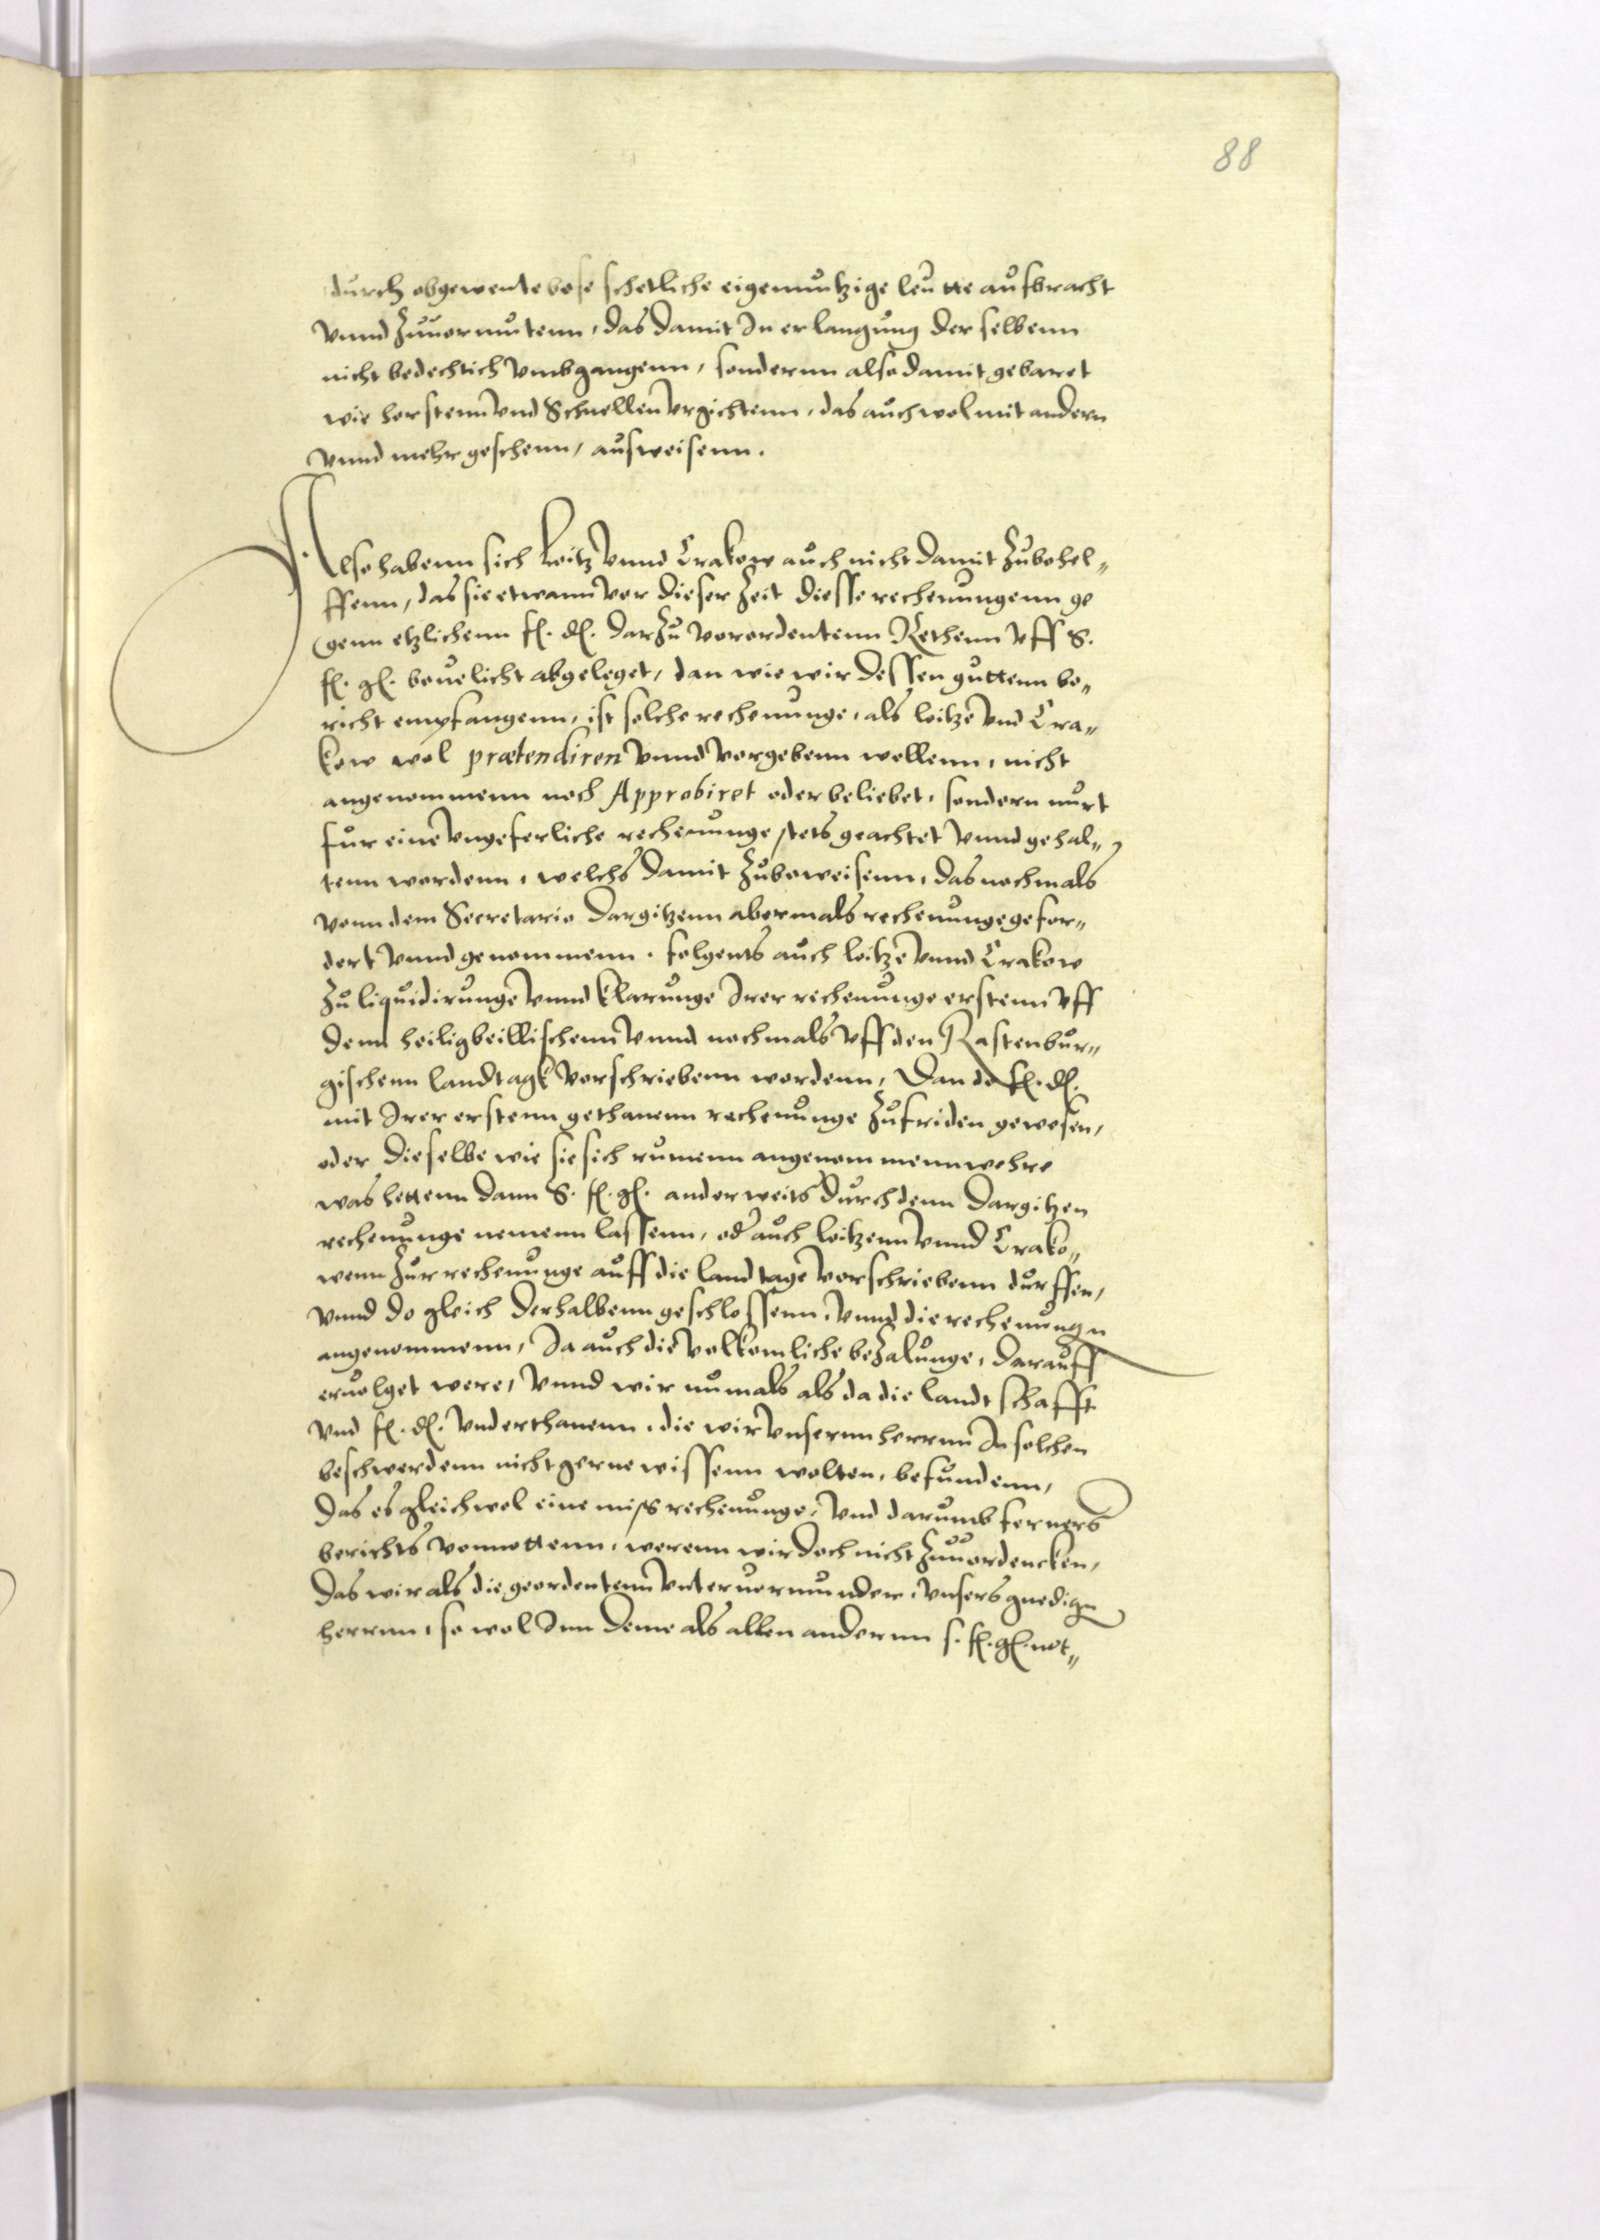 88
durch obgewente bose schetliche eigennutzige leutte aufbracht
vnnd zuuormutenn, das damit in erlangung der selbenn
nicht bedechtich vmbgangenn, sondernn also damit gebaret
wie horstenn vnd Schnellen vrgichtenn, das auch wol mit andern
vnnd mehr geschenn, ausweisenn.
Also habenn sich Loitz vnnd Crakow auch nicht damit zubehel„
ffenn, das sie etwann vor dieser zeit diesse rechenungenn ge
genn etzlichenn f. d. darzu verordentenn Rethenn vff S.
f. g. beuelicht abgeleget, dan wie wir dessen guttenn be„
richt empfangenn, ist solche rechenunge, als loitze vnd Cra„
kow wol prætendiren vnnd vorgebenn wollenn, nicht
angenommenn noch Approbiret oder beliebet, sondern nurt
fur eine vngeferliche rechenunge stets geachtet vnnd gehal„
tenn wordenn, welchs damit zubeweisenn, das nochmals
vonn dem Secretario Dargitzenn abermals rechenunge gefor„
dert vnnd genommenn. folgents auch loitze vnnd Crakow
zu liquidirunge vnnd klarunge Irer rechenunge erstenn vff
denn heiligbeillischenn vnnd nochmals vff den Rastenbur„
gischenn landtagk vorschriebenn wordenn, Dan do f. d.
mit Irer erstenn gethanenn rechenunge zufriden gewesen,
oder dieselbe wie sie sich rumenn angenommenn wehre
was hettenn dann S. f. g. anderweits durch denn Dargitzen
rechenunge nemenn lassenn, od auch loitzenn vnnd Crako„
wenn zur rechenunge auff die landtage vorschriebenn durffen,
vnnd do gleich derhalbenn geschlossenn, vnnd die rechenungn
angenommenn, Ja auch die volkomliche bezalunge, darauff
eruolget were, vnnd wir numals als da die landtschafft
vnd f. d. vnderthanenn, die wir vnsernn herrnn In solchen
beschwerdenn nicht gerne wissenn wolten, befundenn,
das es gleichwol eine miss rechenunge, vnd darumb ferners
berichts vonnottenn, werenn wir doch nicht zuuordencken,
das wir als die geordentenn vnteruormunder, vnsers gnedign
herrnn, so wol Inn deme als allen andernn s. f. g. not„